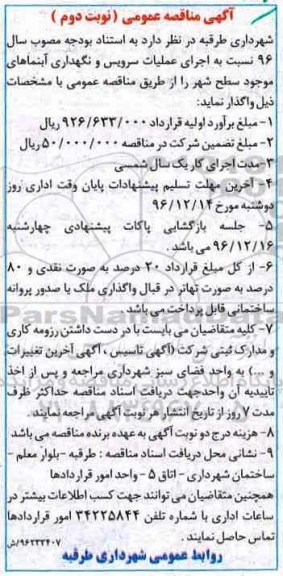 آگهی مناقصه عمومی ( نوبت دوم )
شهرداری طرقبه در نظر دارد به استناد بودجه مصوب سال
۹۶ نسبت به اجرای عملیات سرویس و نگهداری آبنماهای
موجود سطح شهر را از طریق مناقصه عمومی با مشخصات
ذیل واگذار نماید:
۱- مبلغ برآورد اولیه قرارداد ۹۲۶/۶۳۳/۰۰۰ ریال
۲- مبلغ تضمین شرکت در مناقصه ۵۰/۰۰۰/۰۰۰ ریال
۳-مدت اجرای کار یک سال شمسی
۴- آخرین مهلت تسلیم پیشنهادات پایان وقت اداری روز
دوشنبه مورخ ۹۶/۱۲/۱۴
۵- جلسه بازگشایی پاکات پیشنهادی چهارشنبه
۹۶/۱۲/۱۶ می باشد .
۶- از کل مبلغ قرارداد ۲۰ درصد به صورت نقدی و ۸۰
درصد به صورت تهاتر در قبال واگذاری ملک یا صدور پروانه
ساختمانی قابل پرداخت می باشد
۷- کلیه متقاضیان می بایست با در دست داشتن رزومه کاری
و مدارک ثبتی شرکت (آگهی تاسیس ، آگهی آخرین تغییرات
و ...) به واحد فضای سبز شهرداری مراجعه و پس از اخذ
تاییدیه آن واحدجهت دریافت اسناد مناقصه حداکثر ظرف
مدت ۷ روز از تاریخ انتشار هر نوبت آگهی مراجعه نمایند .
۸- هزینه درج دو نوبت آگهی به عهده برنده مناقصه می باشد
۹- نشانی محل دریافت اسناد مناقصه : طرقبه -بلوار معلم -
ساختمان شهرداری - اتاق ۵ - واحد امور قراردادها
همچنین متقاضیان می توانند جهت کسب اطلاعات بیشتر در
ساعات اداری با شماره تلفن ۳۴۲۲۵۸۴۴ امور قراردادها
تماس حاصل نمایند .
۹۶۲۳۲۴۰۷/ش
روابط عمومی شهرداری طرقبه